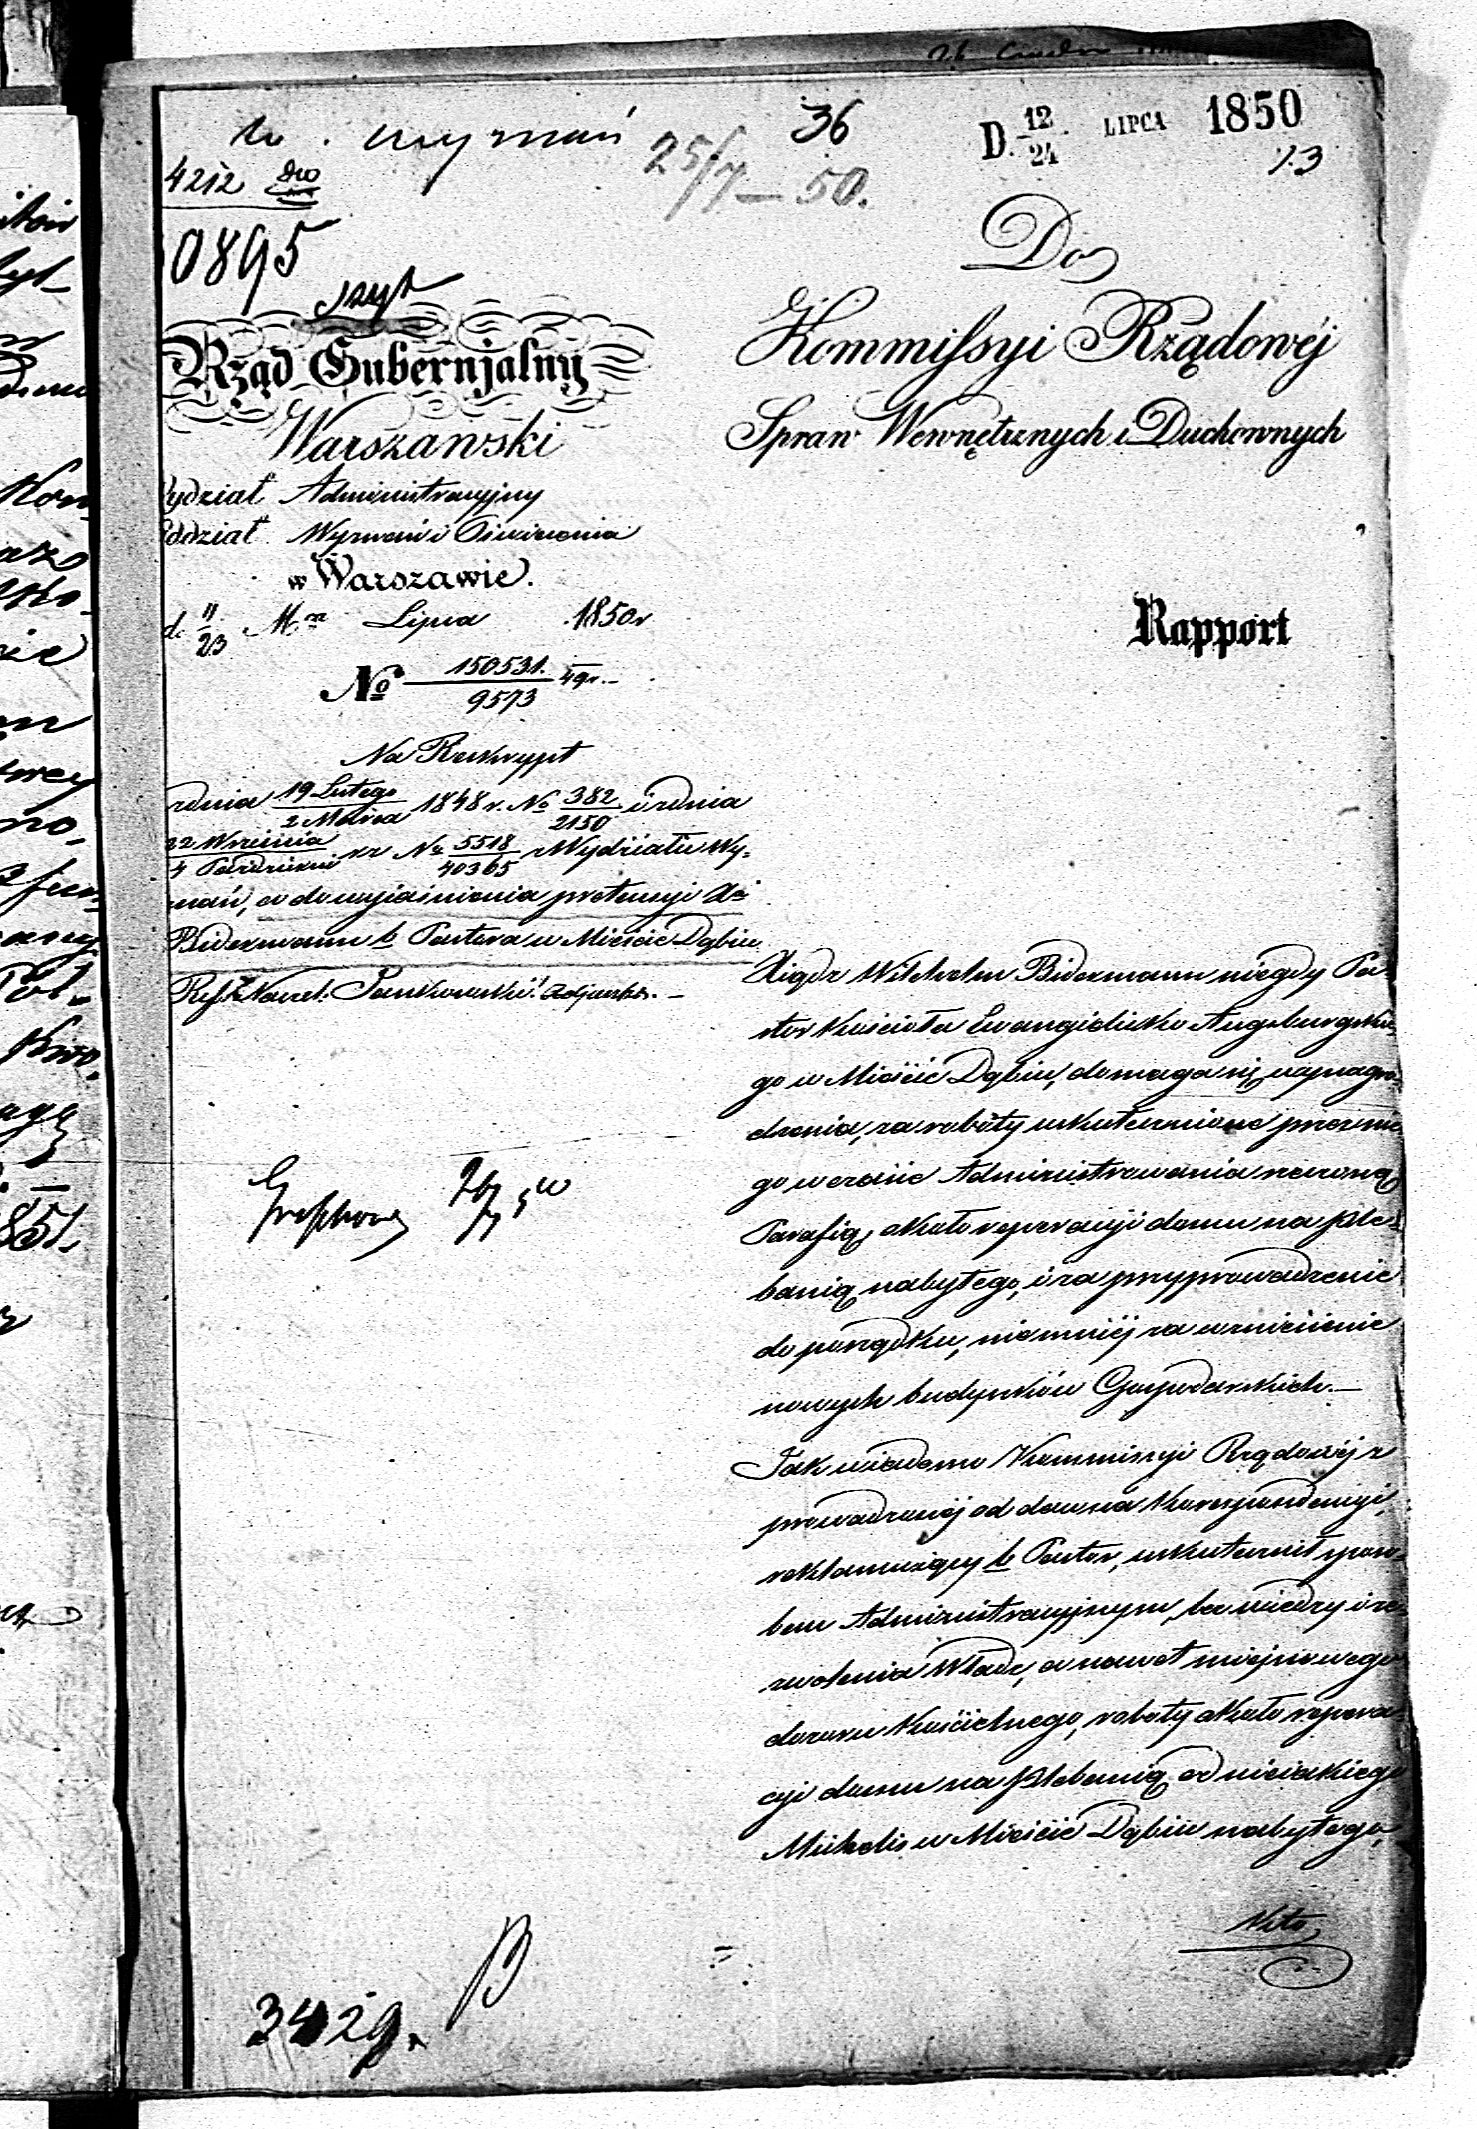 w. wyznań
36
D. 12/24 LIPCA 1850
25/7 – 50.
73
4212
0895
Do
Kommissyi Rządowéj
Spraw Wewnętrznych i Duchownych
Rząd Gubernjalny
Warszawski
ydział Administracyjny
ddział Wyznań i Oświecenia
w Warszawie.
d. 11/23 Mca Lipca 1850 r
Rapport
No 150531/9573
Na Reskrypt
zdnia 19 Lutego/2 Marca 1848 r. No 382/2150 i zdnia
22 Września/4 Października No 5518/40365 z Wydziału Wy-
znań, a do wyjaśnienia pretensyi Xa
Bidermann b Pastora w Mieście Dąbiu
Ref. Jankowski Adjunkt. –
Xiądz Wilhelm Bidermann niegdy Pa-
stor Kościoła Ewangielicko Augsburgskie-
go w Mieście Dąbiu, domaga się wynagro-
dzenia, za roboty uskutecznione przez nie
go w czasie Administrowania rzeczoną
Parafią, około reperacyi domu na ple-
banią nabytego, i za przyprowadzenie
do porządku, niemniéj za wzniesienie
nowych budynków Gospodarskich. –
Jak wiadomo Kommissyi Rządowéj z
prowadzonéj od dawna Korespondencyi,
reklamujący b Pastor, uskutecznił sposo-
bem Administracyjnym, bez wiedzy i ze-
zwolenia Władz, a nawet miejscowego
dozoru Kościelnego, roboty około repera-
cyi domu na plebanią od niejakiego
Michelis w Mieście Dąbiu nabytego,
26/7 50
Kto
3429.